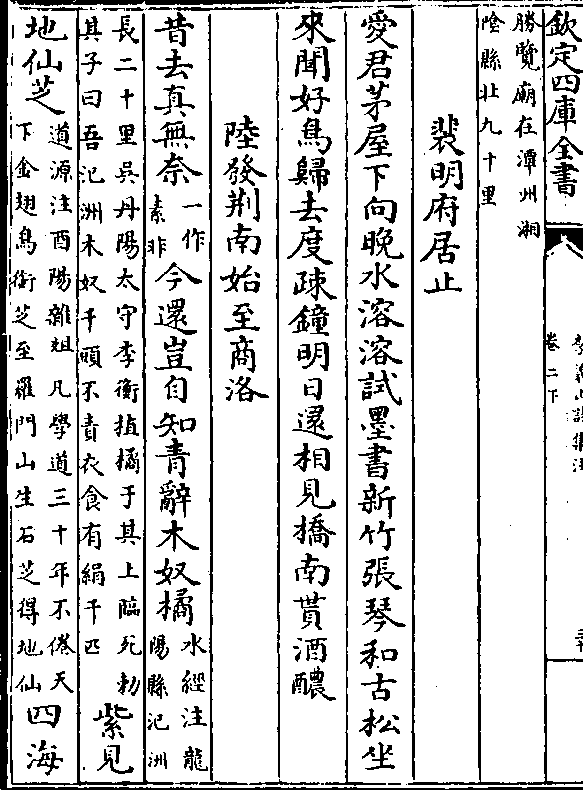 欽定四庫全書
卷二下
勝覽廟在潭州湘
陰縣北九十里
裴明府居止
愛君茅屋下向晚水溶溶試墨書新竹張琴和古松坐
來聞好鳥歸去度疎鐘明日還相見橋南貰酒醲
陸發荆南始至商洛
昔去真無奈一作素非今還豈自知青辭木奴橘水經注龍陽縣汜洲
長二十里吳丹陽太守李衡植橘于其上臨死勅其子曰吾汜洲木奴千頭不責衣食有絹千匹紫見
地仙芝道源注酉陽雜俎凡學道三十年不倦天下金翅鳥銜芝至羅門山生石芝得地仙四海